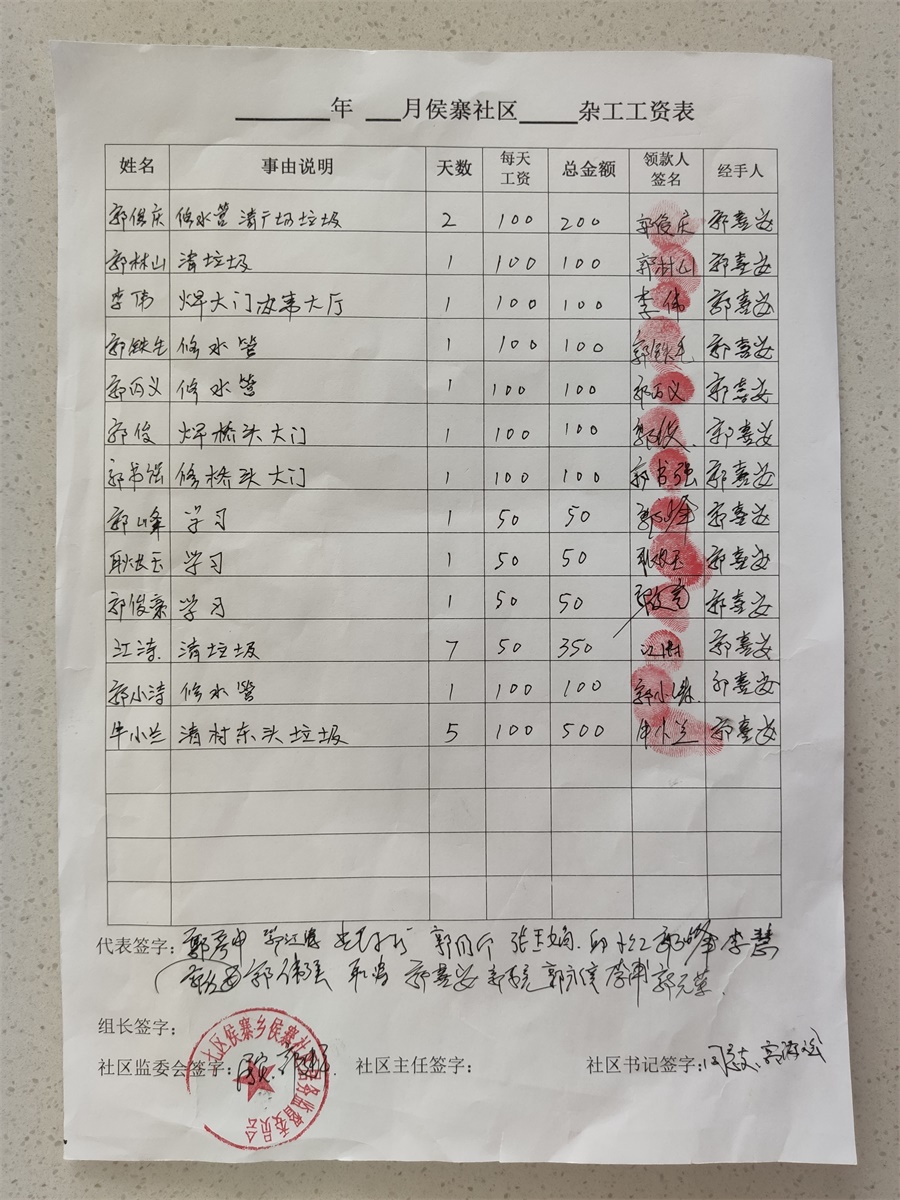 年 月侯寨社区 杂工工资表
姓名 事由说明 天数 每天工资 总金额 领款人签名 经手人
郭俊庆 修水管 清广场垃圾 2 100 200 郭俊庆 郭喜安
郭林山 清垃圾 1 100 100 郭林山 郭喜安
李伟 焊大门办事大厅 1 100 100 李伟 郭喜安
郭铁毛 修水管 1 100 100 郭铁毛 郭喜安
郭丙义 修水管 1 100 100 郭丙义 郭喜安
郭俊 焊桥头大门 1 100 100 郭俊 郭喜安
郭书强 修桥头大门 1 100 100 郭书强 郭喜安
郭峰 学习 1 50 50 郭峰 郭喜安
学习 1 50 50 郭喜安
学习 1 50 50 郭喜安
江涛 清垃圾 7 50 350 郭喜安
郭小涛 修水管 1 100 100 郭小涛 郭喜安
牛小兰 清村东头垃圾 5 100 500 牛小兰 郭喜安
代表签字: 郭峰 李慧
郭伟强 郭喜安 郭元苹
组长签字:
社区监委会签字: 社区主任签字: 社区书记签字:
七区侯寨乡侯寨社区居务监督委员会